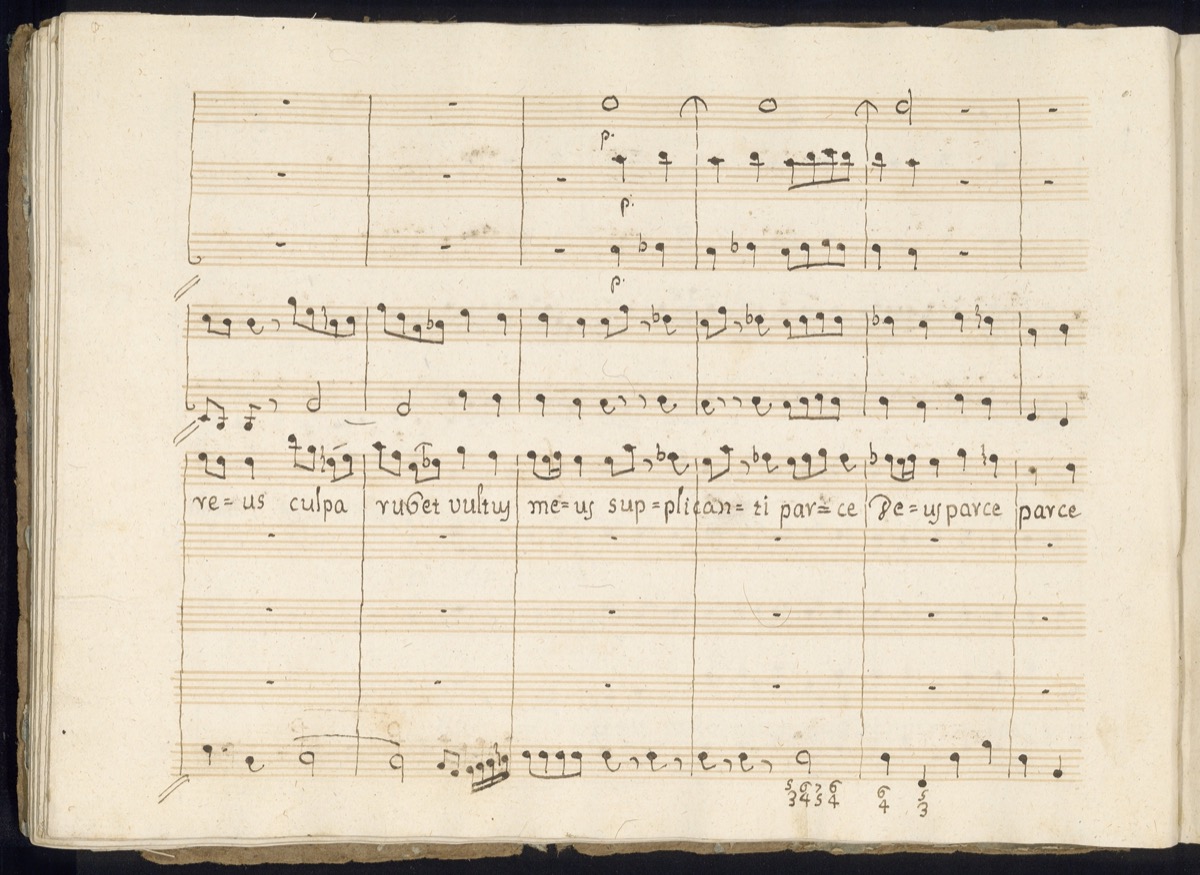 p.
p.
p.
re=us culpa rubet vultus me=us sup=plican=ti par=ce De=us parce parce
5 6 7 6 6 5
3 4 5 4 4 3